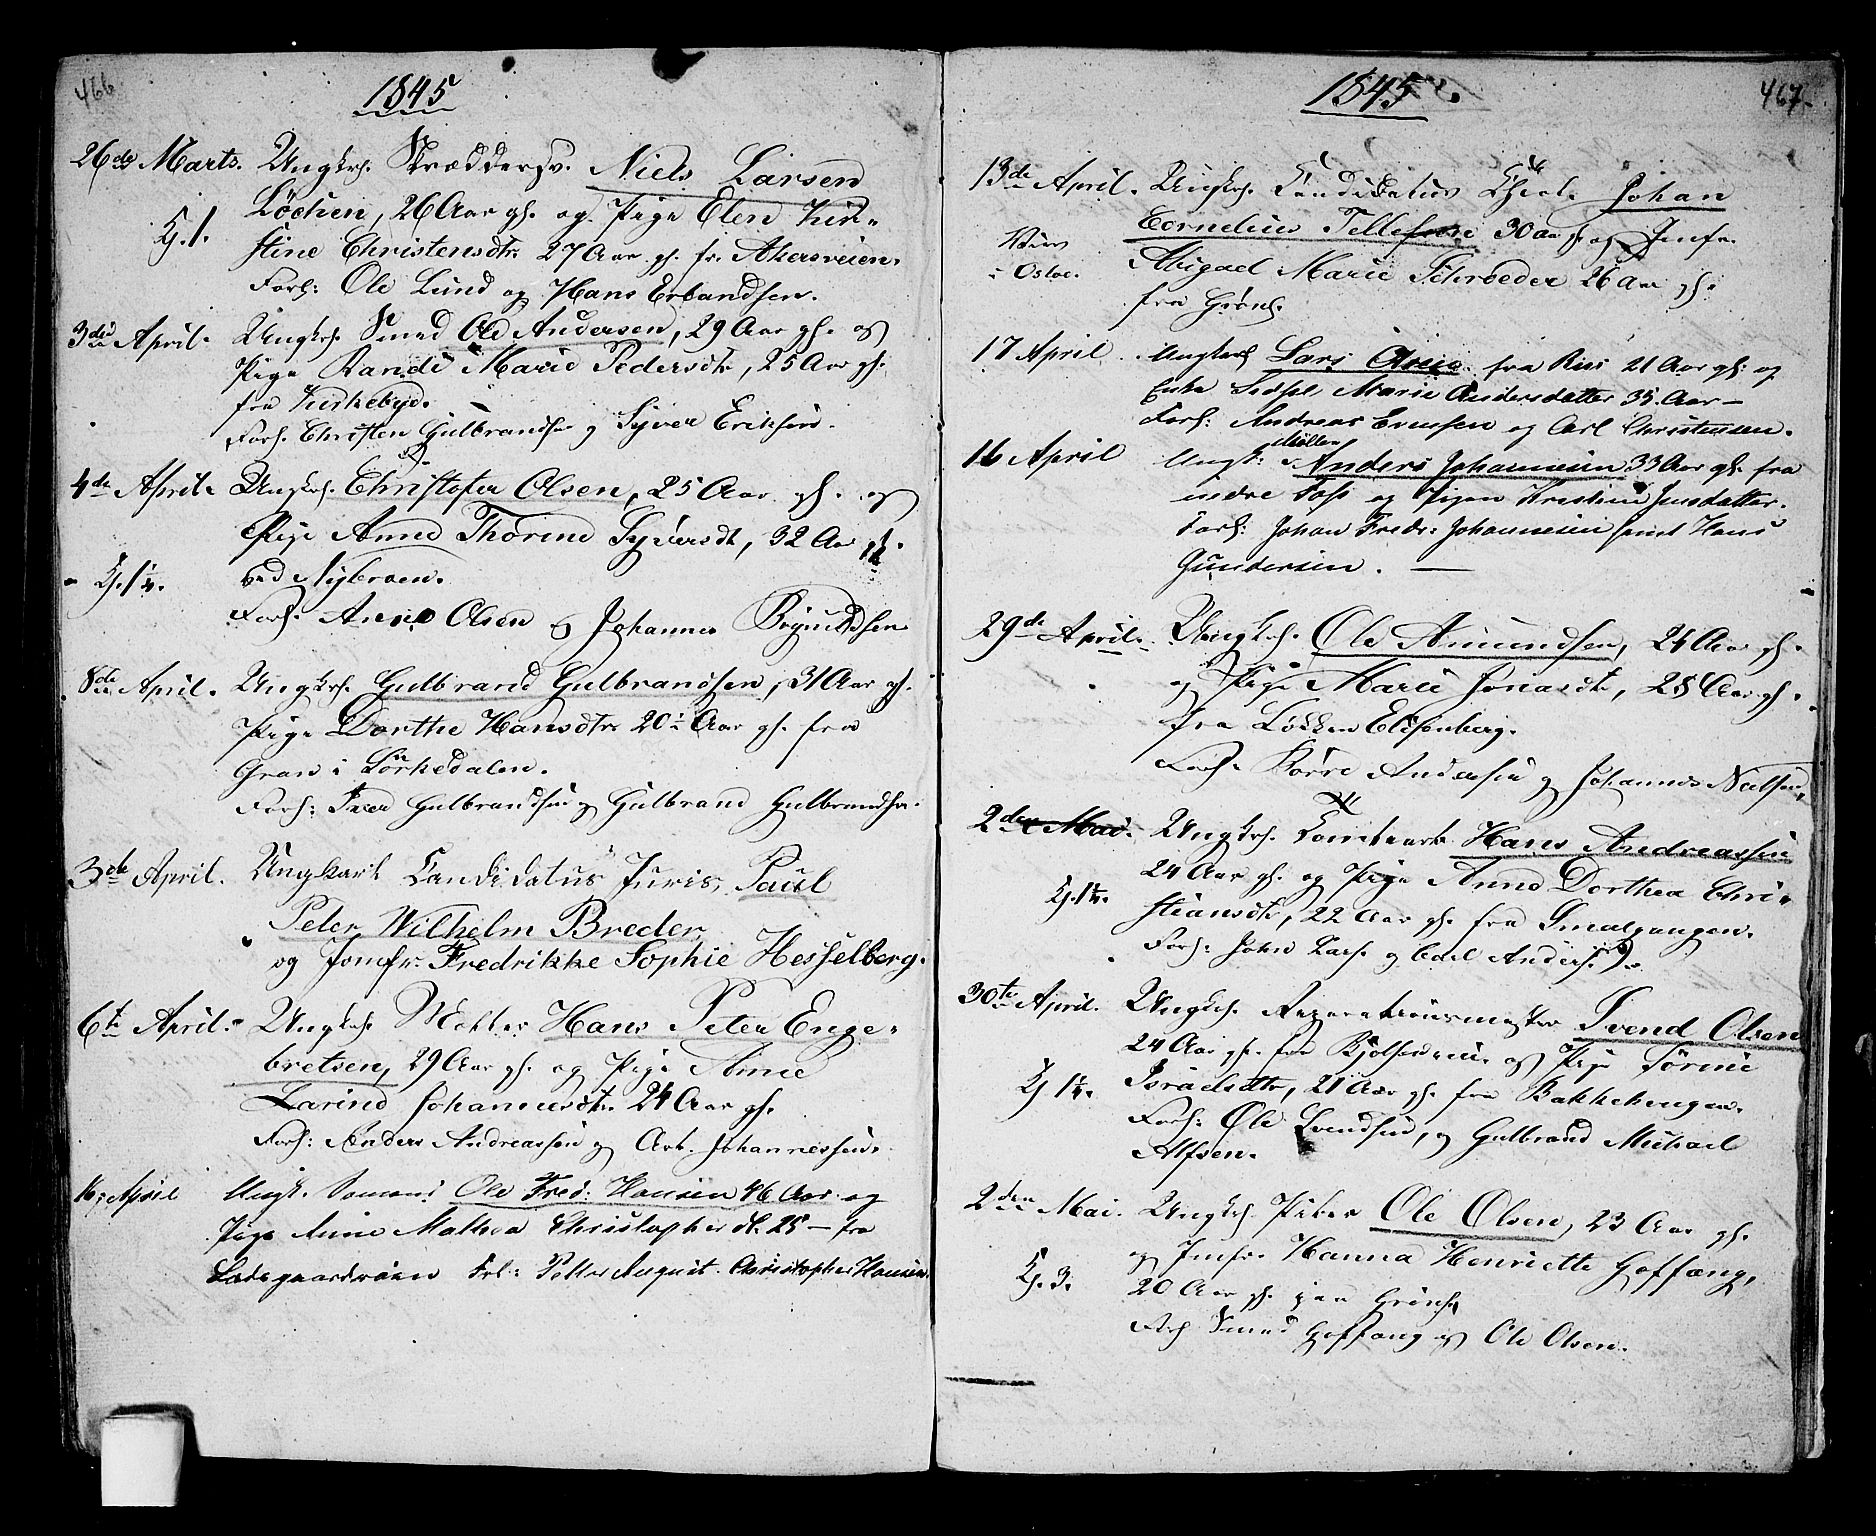 466
1845
26de Marts. Ungkrh. Skræddersv. Niels Larsen
Løchen, 26 Aar gl. og Pige Elen Kir-
G. 1.
stine Christensdtr 27 Aar gl. fr. Akersveien.
Forl: Ole Lund og Hans Erlandsen.
3die April. Ungkrh. Smed Ole Andersen, 29 Aar gl. og
Pige Randi Marie Pedersdtr, 25 Aar gl.
fra Kirkebye.
Forl. Christen Gulbrandsen og Syver Eriksen.
4de April. Ungkrh. Christofer Olsen, 25 Aar gl. og
Pige Anne Thorine Syversdtr, 32 Aar gl.
G. 1¼.
ved Nybroen.
Forl. Arne Olsen og Johannes
8de April. Ungkrh. Gulbrand Gulbrandsen, 31 Aar gl.
Pige Dorthe Hansdtr 20½ Aar gl. fra
Gran i Sørkedalen.
Forl: Iver Gulbrandsen og Gulbrand Gulbrandsen.
3de April. Ungkarl Candidatus Juris, Paul
Peter Wilhelm Breder,
og Jomfr. Fredrikke Sophie Hesselberg.
6te April. Ungkrh. Hans Peter Enge-
bretsen, 29 Aar gl. og Pige Anne
Larine Johannesdtr. 24 Aar gl.
Forl: Anders Andreassen og Johannessen.
16 April Ungk. Somand Ole Fred: Hansen 46 Aar og
Pige Anne Mathea Christopherdt. 25 – fra
Ladegaardsøen Forl: Petter August. Christopher Hansen.
467.
1845.
13de April. Ungkrh. Candidatus Theol. Johan
Cornelius Tellefsen 30 Aar gl. og Jmfr.
Viet
i Osloe.
Abigael Marie Schrøeder 26 Aar gl.
fra Grønl.
17 April. Ungkarl Lars fra Riis 21 Aar gl: og
Enke Sidsel Marie Andersdatter 35. Aar –
Forl: Andreas Evensen og Carl Christensen.
Møller
16 April Ungk: Anders Johannesen 33 Aar gl. fra
indre Foss og Pigen Kristine Jensdatter.
Forl: Johan Fredr: Johannesen samt Hans
Gundersen. —
29de April. Ungkrh. Ole Amundsen, 24 Aar gl.
og Pige Marie Jonasdtr, 25 Aar gl.
fra Løkken Elisenberg.
Forl. Børre Andersen og Johannes Nielsen,
2den Mai. Ungkrh. Hans Andreassen
24 Aar gl. og Pige Anne Dorthea Chri-
G. 1¼.
stiansdtr, 22 Aar gl. fra Smalgangen.
Forl: John Lars. og Carl Anders.
30te April. Ungkrh. Svend Olsen
24 Aar gl. fra og Pige Sørine
G. 1¼.
Israelsdtr, 21 Aar gl. fra Bakkehougen.
Forl: Ole Svendsen, og Gulbrand Michael
Alfsen.
2den Mai. Ungkrh. Ole Olsen, 23 Aar gl.
og Jmfr. Hanna Henriette Hoffæng,
G. 3.
20 Aar gl. paa Grønl.
Forl Smed Hoffæng og Ole Olsen.